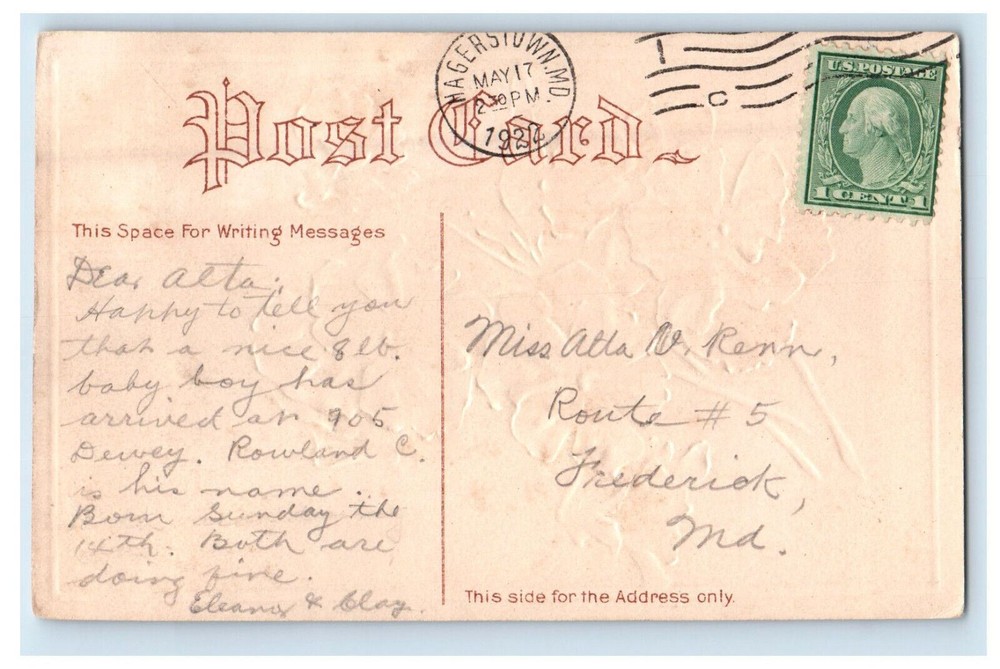 HAGERSTOWN, MD.
MAY 17
2 30 PM
1922
C
U.S. POSTAGE
1 CENT 1
Post Card
This Space For Writing Messages
Dear Alta:
Happy to tell you
that a nice 8 lb.
baby boy has
arrived at 905
Dewey. Rowland C.
is his name.
Born Sunday the
14th. Both are
doing fine.
Eleanor & Clay.
Miss Alta V. Renn,
Route # 5
Frederick,
Md.
This side for the Address only.